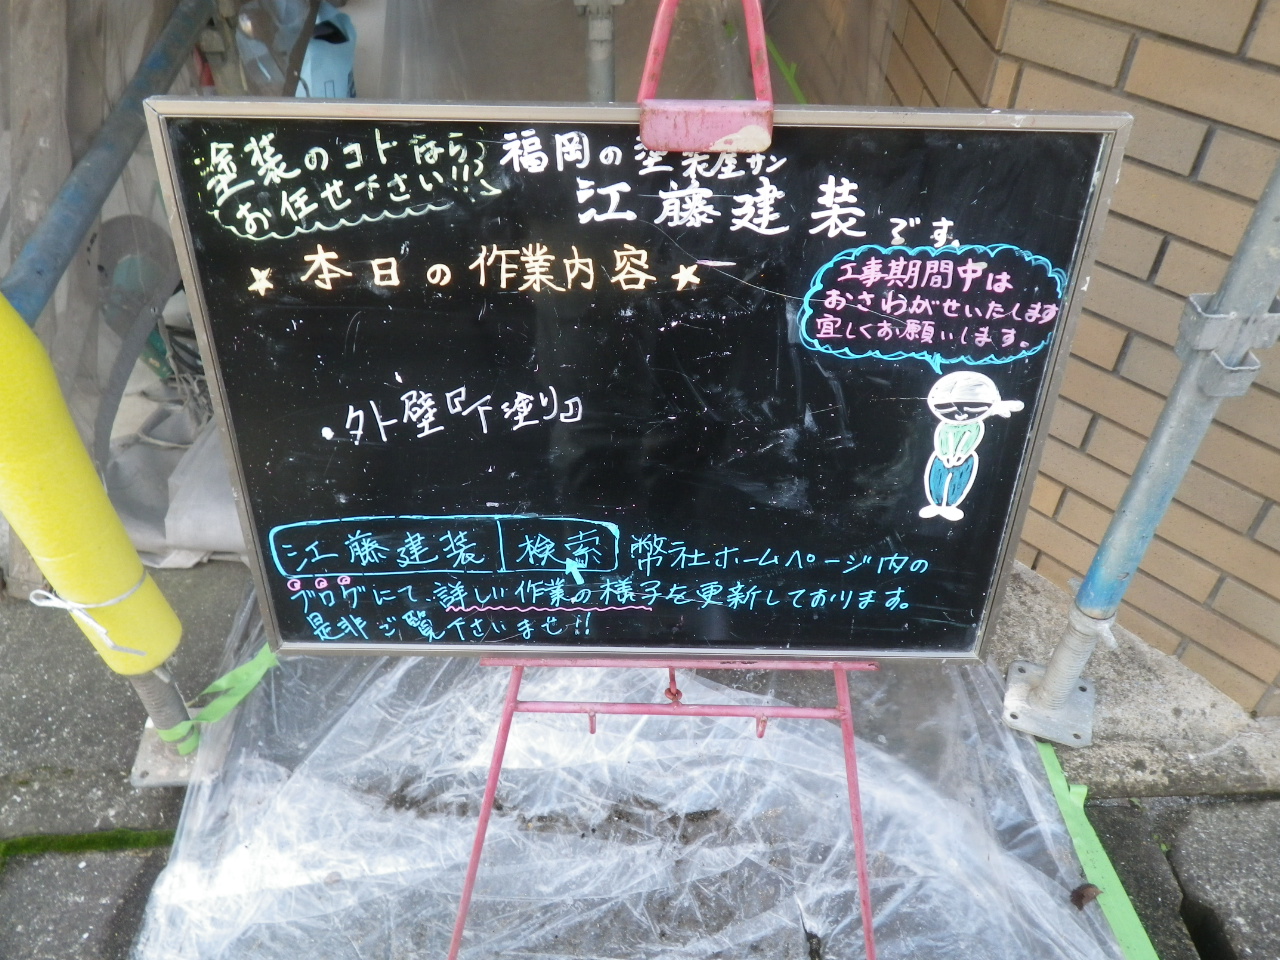 塗装のコトなら
お任せ下さい!!
福岡の塗装屋サン
江藤建装です。
★本日の作業内容★
工事期間中は
おさわがせいたします
宜しくお願いします。
・外壁『下塗り』
江藤建装 検索 弊社ホームページ内の
ブログにて、詳しい作業の様子を更新しております。
是非ご覧下さいませ!!